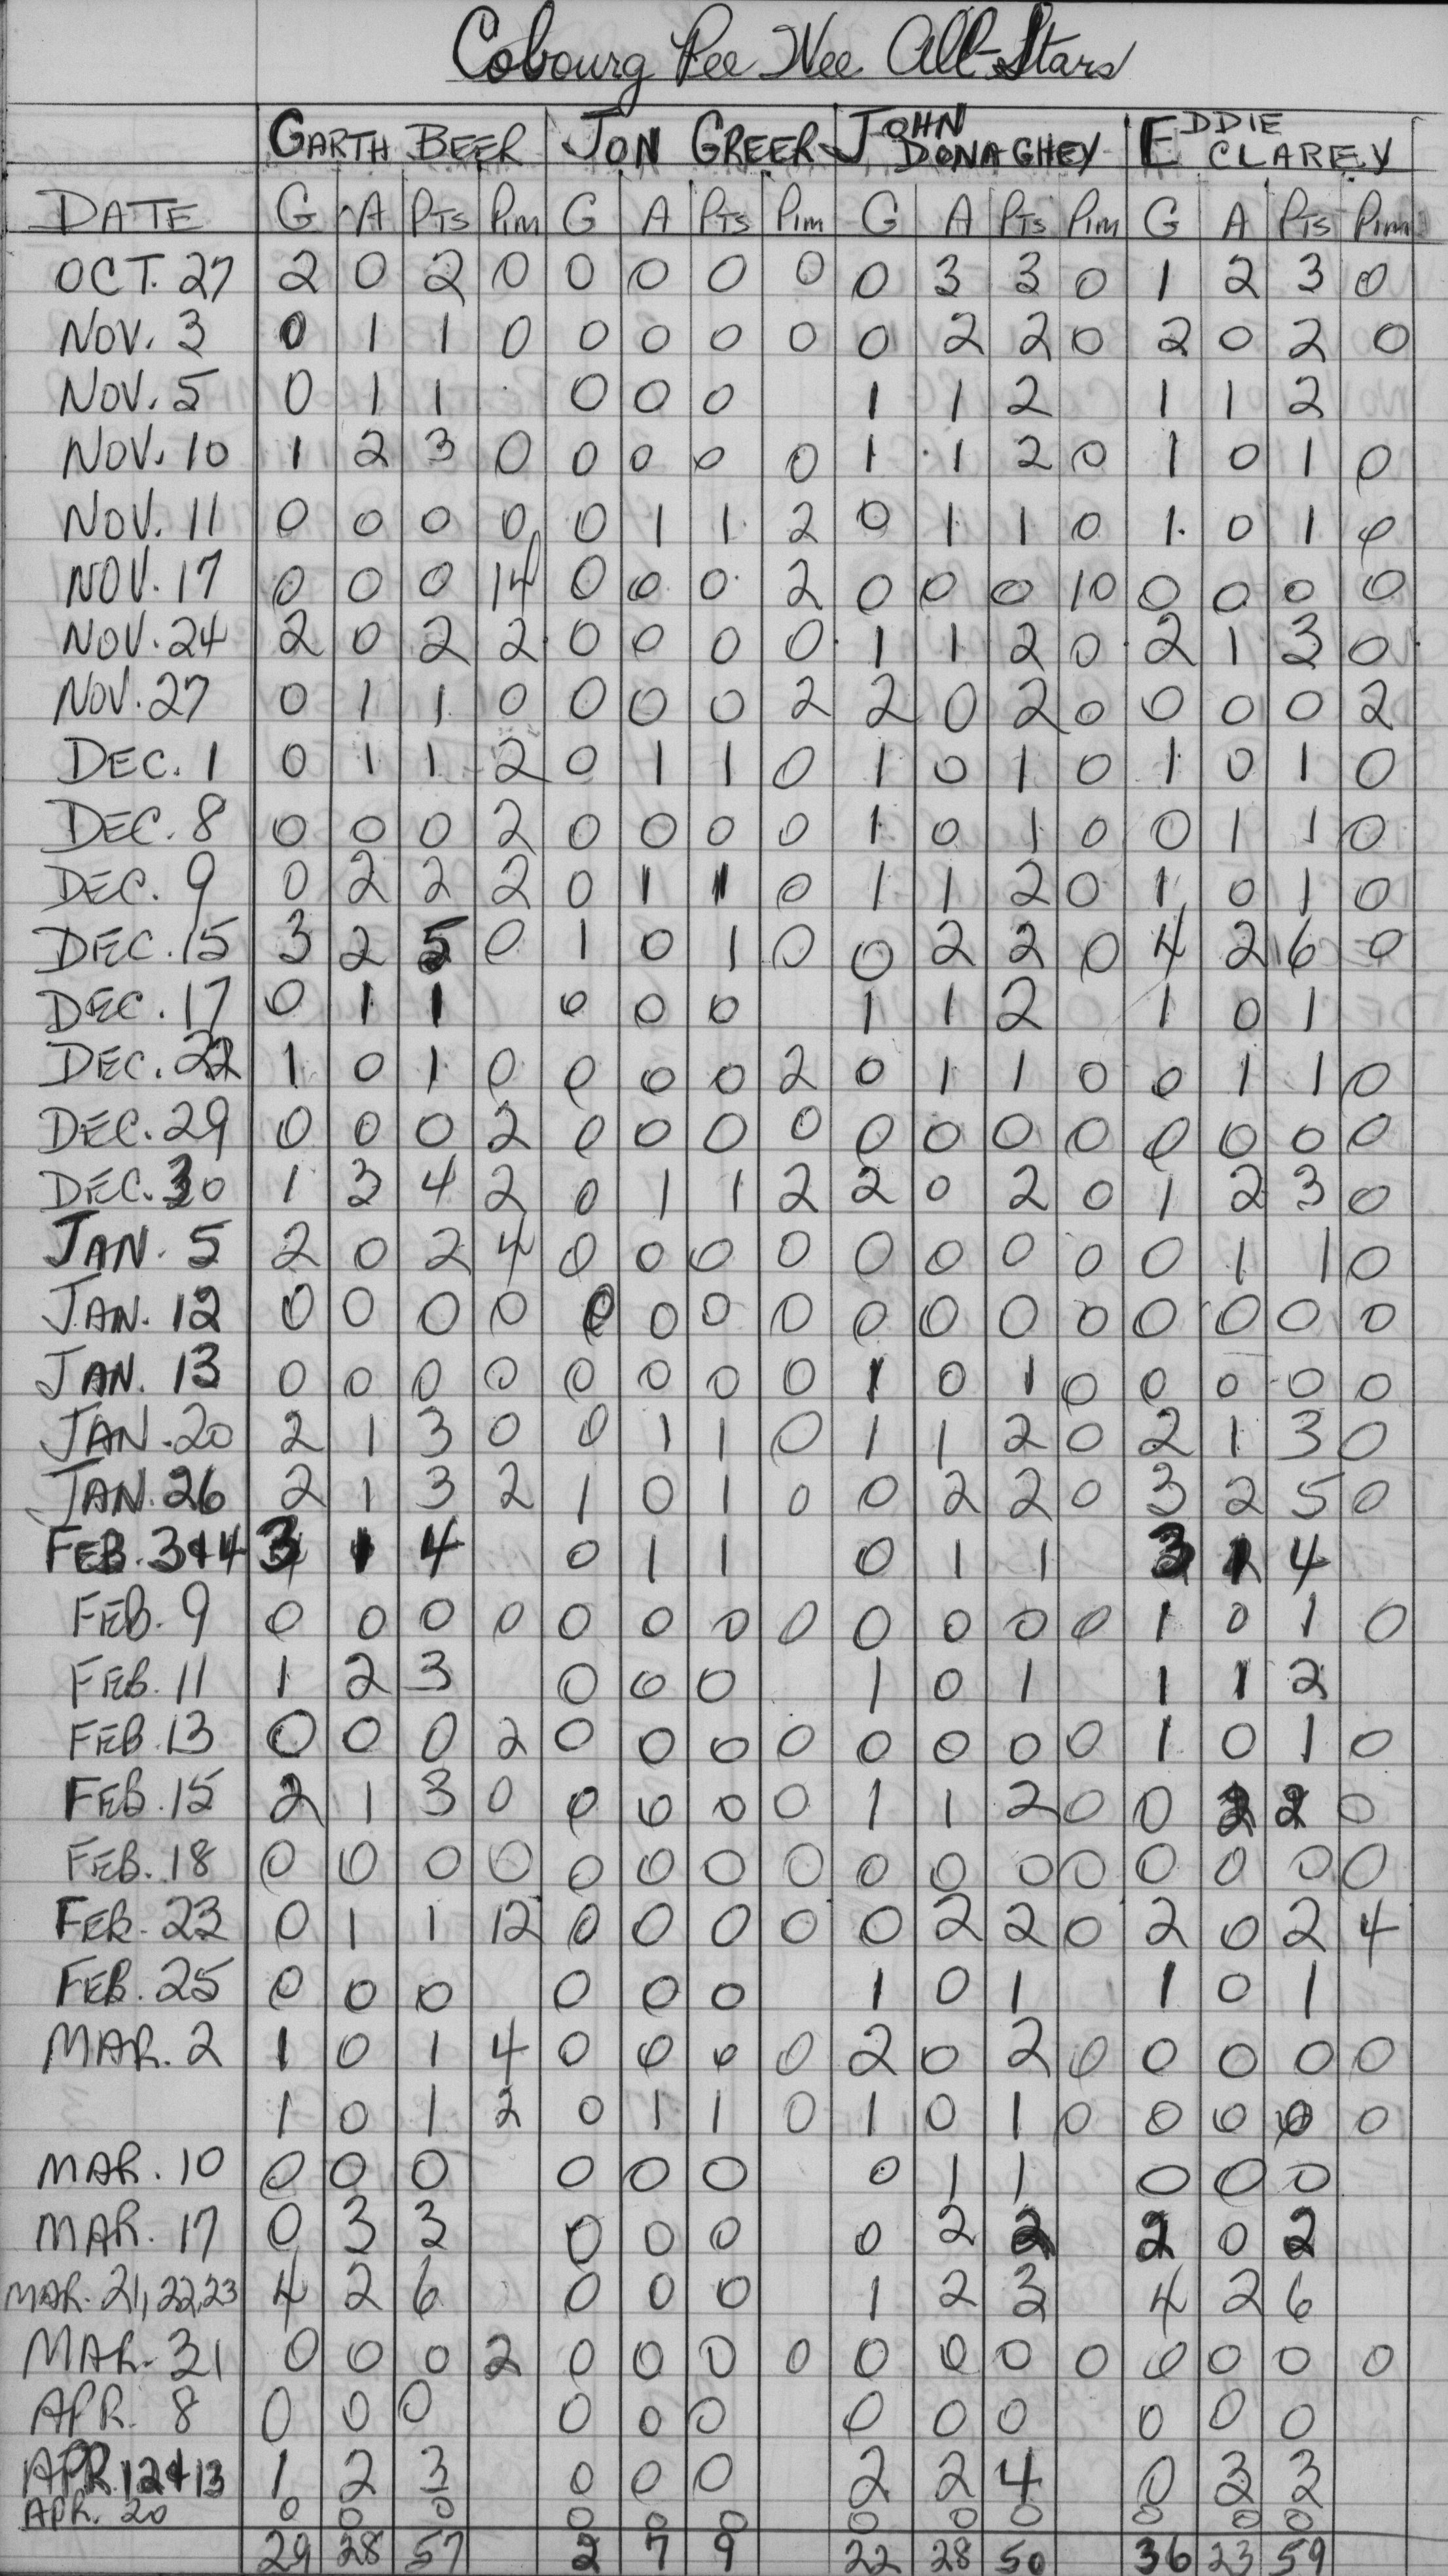 Cobourg Pee Wee All-Stars
GARTH BEER JON GREER JOHN DONAGHEY EDDIE CLAREY
DATE G A PTS Pim G A PTS Pim G A PTS Pim G A PTS Pim
OCT. 27 2 0 2 0 0 0 0 0 0 3 3 0 1 2 3 0
NOV. 3 0 1 1 0 0 0 0 0 0 2 2 0 2 0 2 0
NOV. 5 0 1 1 0 0 0 1 1 2 1 1 2
NOV. 10 1 2 3 0 0 0 0 0 1 1 2 0 1 0 1 0
NOV. 11 0 0 0 0 0 1 1 2 0 1 1 0 1 0 1 0
NOV. 17 0 0 0 14 0 0 0 2 0 0 0 10 0 0 0 0
NOV. 24 2 0 2 2 0 0 0 0 1 1 2 0 2 1 3 0
NOV. 27 0 1 1 0 0 0 0 2 2 0 2 0 0 0 0 2
DEC. 1 0 1 1 2 0 1 1 0 1 0 1 0 1 0 1 0
DEC. 8 0 0 0 2 0 0 0 0 1 0 1 0 0 1 1 0
DEC. 9 0 2 2 2 0 1 1 0 1 1 2 0 1 0 1 0
DEC. 15 3 2 5 0 1 0 1 0 0 2 2 0 4 2 6 0
DEC. 17 0 1 1 0 0 0 1 1 2 1 0 1
DEC. 22 1 0 1 0 0 0 0 2 0 1 1 0 0 1 1 0
DEC. 29 0 0 0 2 0 0 0 0 0 0 0 0 0 0 0 0
DEC. 30 1 3 4 2 0 1 1 2 2 0 2 0 1 2 3 0
JAN. 5 2 0 2 4 0 0 0 0 0 0 0 0 0 1 1 0
JAN. 12 0 0 0 0 0 0 0 0 0 0 0 0 0 0 0 0
JAN. 13 0 0 0 0 0 0 0 0 1 0 1 0 0 0 0 0
JAN. 20 2 1 3 0 0 1 1 0 1 1 2 0 2 1 3 0
JAN. 26 2 1 3 2 1 0 1 0 0 2 2 0 3 2 5 0
FEB. 3+4 3 1 4 0 1 1 0 1 1 3 1 4
FEB. 9 0 0 0 0 0 0 0 0 0 0 0 0 1 0 1 0
FEB. 11 1 2 3 0 0 0 1 0 1 1 1 2
FEB. 13 0 0 0 2 0 0 0 0 0 0 0 0 1 0 1 0
FEB. 15 2 1 3 0 0 0 0 0 1 1 2 0 0 2 2 0
FEB. 18 0 0 0 0 0 0 0 0 0 0 0 0 0 0 0 0
FEB. 23 0 1 1 12 0 0 0 0 0 2 2 0 2 0 2 4
FEB. 25 0 0 0 0 0 0 1 0 1 1 0 1
MAR. 2 1 0 1 4 0 0 0 0 2 0 2 0 0 0 0 0
1 0 1 2 0 1 1 0 1 0 1 0 0 0 0 0
MAR. 10 0 0 0 0 0 0 0 1 1 0 0 0
MAR. 17 0 3 3 0 0 0 0 2 2 2 0 2
MAR. 21, 22, 23 4 2 6 0 0 0 1 2 3 4 2 6
MAR. 31 0 0 0 2 0 0 0 0 0 0 0 0 0 0 0 0
APR. 8 0 0 0 0 0 0 0 0 0 0 0 0
APR 12+13 1 2 3 0 0 0 2 2 4 0 3 3
APR. 20 0 0 0 0 0 0 0 0 0 0 0 0
29 28 57 2 7 9 22 28 50 36 23 59